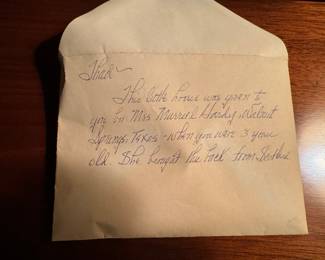 Thad ~
This little horse was given to
you by Mrs Murrie Hardy, Walnut
Springs, Texas - when you were 3 years
old. She brought this back from